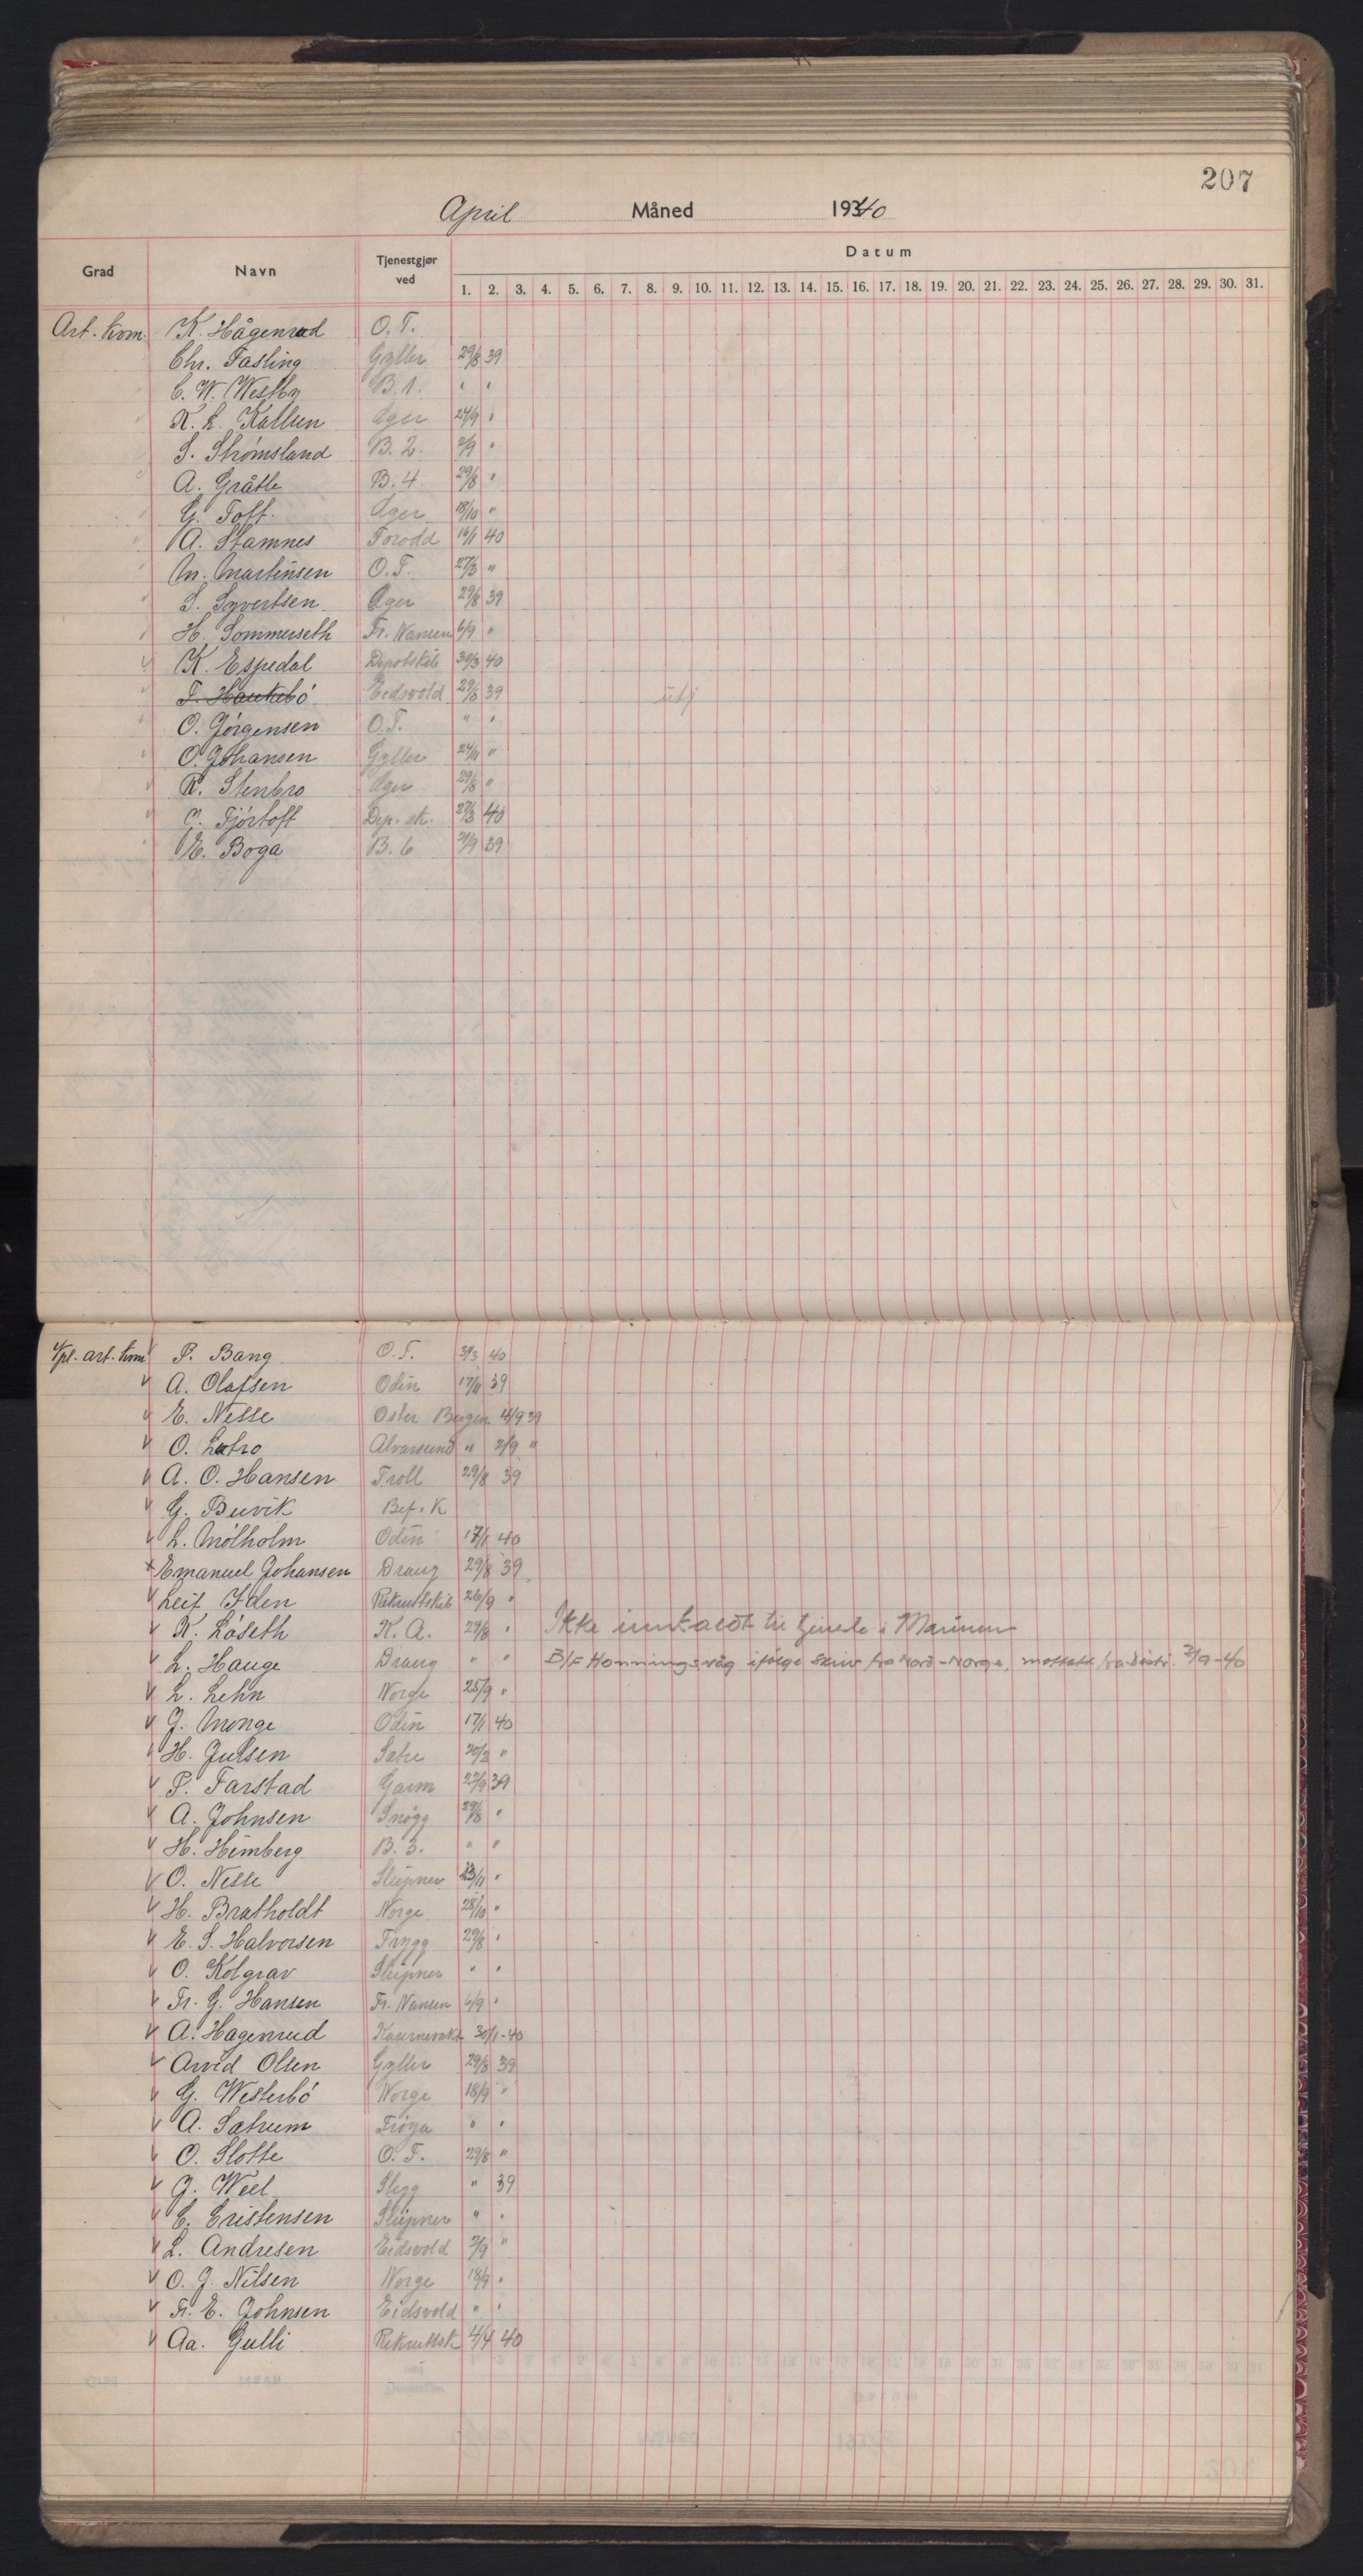 207
April Måned 1940
Grad Navn Tjenestgjør ved Datum
1. 2. 3. 4. 5. 6. 7. 8. 9. 10. 11. 12. 13. 14. 15. 16. 17. 18. 19. 20. 21. 22. 23. 24. 25. 26. 27. 28. 29. 30. 31.
Art. kvm. K. Hågenrud O.T.
" Chr. Fasting Gyller 29/8 39
" C. W. Westby B.1. " "
" K. L. Kallum Æger 24/9 "
" S. Strømsland B. 2. 2/9 "
" A. Gråtle B. 4. 29/8 "
" G. Toft Æger 18/10 "
" A. Stamnes Torodd 16/1 40
" M. Martinsen O.T. 27/3 "
" S. Syvertsen Æger 29/8 39
" H. Sommerseth Fr. Nansen 6/9 "
" K. Espedal Depotskib 30/3 40
" T. Haukebö Eidsvold 29/8 39 utj
" O. Jørgensen O.T. " "
" O. Johansen Gyller 24/11 "
" R. Stenbro Æger 29/8 "
" J. Fjörtoft Dep. sk. 27/3 40
" E. Boga B. 6 2/9 39
Vpl. art. kvm P. Bang O.T. 30/3 40
A. Olafsen Odin 17/11 39
E. Nesse Oster Bergen 4/9 39
O. Latro Alversund " 2/9 "
A. O. Hansen Troll 29/8 39
G. Buvik Bef. K
L. Mölholm Odin 17/1 40
Emanuel Johansen Draug 29/8 39
Leif Iden Rekruttskib 26/9 "
K. Löseth K. A. 29/8 " Ikke innkaldt til tjeneste i Marinen
L. Hauge Draug " " B/F Honningsvåg ifølge skriv fra Nord-Norge, mottatt fra distr. 2/9-40
L. Lehn Norge 25/9 "
J. Monge Odin 17/1 40
H. Julsen Sætre 20/2 "
P. Farstad Garm 22/9 39
A. Johnsen Snøgg 29/8 "
H. Heimberg B. 3. " "
O. Nesse Sleipner 23/11 "
H. Bratholdt Norge 28/10 "
E. S. Halvorsen Trygg 29/8 "
O. Kolgrav Sleipner " "
Fr. G. Hansen Fr. Nansen 6/9 "
A. Hagenrud Kasernevakt 30/1-40
Arvid Olsen Gyller 29/8 39
G. Westerbö Norge 18/9 "
A. Sætrum Frøya " "
O. Slotte O. T. 29/8 "
J. Weel Skegg " 39
C. Cristensen Sleipner " "
L. Andresen Eidsvold 2/9 "
O. J. Nilsen Norge 18/9 "
Fr. E. Johnsen Eidsvold " "
Aa. Gulli Rekruttsk 4/4 40